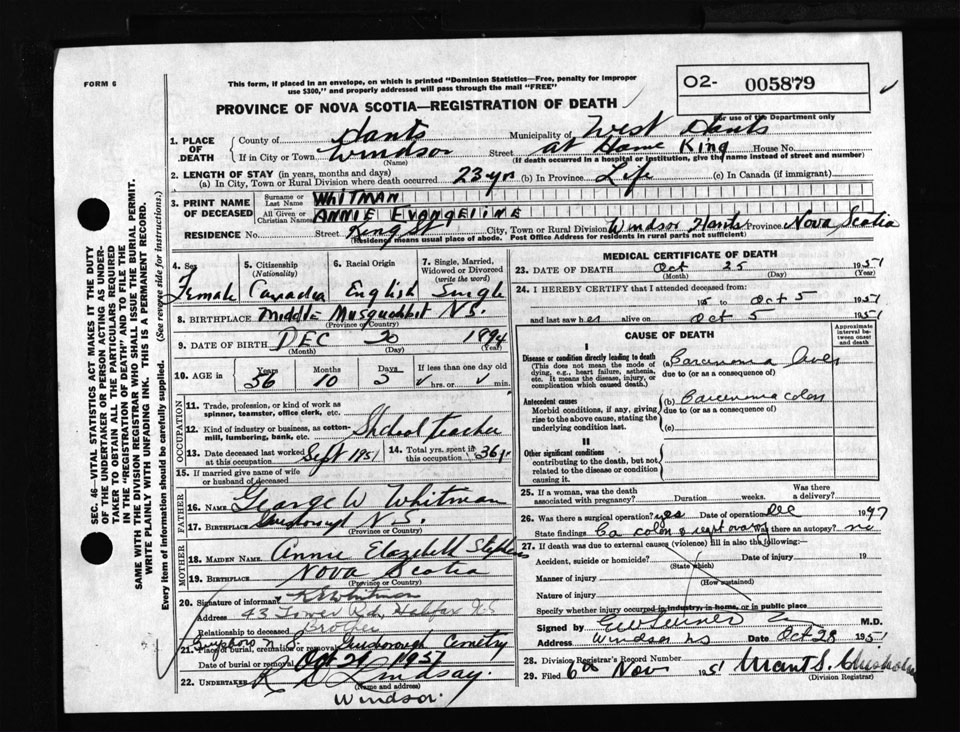 FORM 6
This form, if placed in an envelope, on which is printed "Dominion Statistics—Free, penalty for improper
use $300," and properly addressed will pass through the mail "FREE"
O2- 005879
For use of the Department only
PROVINCE OF NOVA SCOTIA—REGISTRATION OF DEATH
SEC. 46—VITAL STATISTICS ACT MAKES IT THE DUTY
OF THE UNDERTAKER OR PERSON ACTING AS UNDER-
TAKER TO OBTAIN ALL THE PARTICULARS REQUIRED
IN THE "REGISTRATION OF DEATH" AND TO FILE THE
SAME WITH THE DIVISION REGISTRAR WHO SHALL ISSUE THE BURIAL PERMIT.
WRITE PLAINLY WITH UNFADING INK. THIS IS A PERMANENT RECORD.
Every item of information should be carefully supplied. (See reverse side for instructions.)
1. PLACE OF DEATH
County of Hants Municipality of West Hants
If in City or Town Windsor Street at Home King House No.
(Name) (If death occurred in a hospital or institution, give the name instead of street and number)
2. LENGTH OF STAY (in years, months and days)
(a) In City, Town or Rural Division where death occurred 23 yrs (b) In Province Life (c) In Canada (if immigrant)
3. PRINT NAME OF DECEASED
Surname or Last Name WHITMAN
All Given or Christian Names ANNIE EVANGELINE
RESIDENCE No. Street King St City, Town or Rural Division Windsor Hants Province Nova Scotia
(Residency means usual place of abode. Post Office Address for residents in rural parts not sufficient)
4. Sex 5. Citizenship (Nationality) 6. Racial Origin 7. Single, Married, Widowed or Divorced (write the word)
Female Canadia English Single
8. BIRTHPLACE Middle Musquodobit N.S.
(Province or Country)
9. DATE OF BIRTH DEC 20 1894
(Month) (Day) (Year)
10. AGE in Years Months Days If less than one day old
56 10 5 hrs. or min.
OCCUPATION
11. Trade, profession, or kind of work as spinner, teamster, office clerk, etc.
12. Kind of industry or business, as cotton-mill, lumbering, bank, etc. School teacher
13. Date deceased last worked at this occupation Sept 1951 14. Total yrs. spent in this occupation 36 yr
15. If married give name of wife or husband of deceased
FATHER
16. Name George W Whitman
17. Birthplace Guysboro N.S.
(Province or Country)
MOTHER
18. MAIDEN NAME Annie Elazebeth
19. BIRTHPLACE Nova Scotia
(Province or Country)
20. Signature of informant Whitman
Address 43 Tower Rd, Halifax N.S
Relationship to deceased Brother
21. Place of burial, cremation or removal Cemetry
Date of burial or removal 1951
22. UNDERTAKER Lindsay
(Name and address)
Windsor.
MEDICAL CERTIFICATE OF DEATH
23. DATE OF DEATH Oct 25 1951
(Month) (Day) (Year)
24. I HEREBY CERTIFY that I attended deceased from:
19 to Oct 5 1951
and last saw her alive on Oct 5 1951
CAUSE OF DEATH
Approximate interval between onset and death
I
Disease or condition directly leading to death (a) Carcinoma liver
(This does not mean the mode of dying, e.g., heart failure, asthenia, etc. It means the disease, injury, or complication which caused death.)
due to (or as a consequence of)
Antecedent causes (b) Carcinoma colon
Morbid conditions, if any, giving rise to the above cause, stating the underlying condition last.
due to (or as a consequence of:)
(c)
II
Other significant conditions
contributing to the death, but not related to the disease or condition causing it.
25. If a woman, was the death associated with pregnancy? Duration weeks. Was there a delivery?
26. Was there a surgical operation? yes Date of operation Dec 1947
State findings Ca colon & right ovary Was there an autopsy? no
27. If death was due to external causes (violence) fill in also the following:—
Accident, suicide or homicide? Date of injury 19
(State which)
Manner of injury
(How sustained)
Nature of injury
Specify whether injury occurred in industry, in home, or in public place
Signed by M.D.
Address Windsor NS Date Oct 28 1951
28. Division Registrar's Record Number
29. Filed 6th Nov 1951
(Division Registrar)